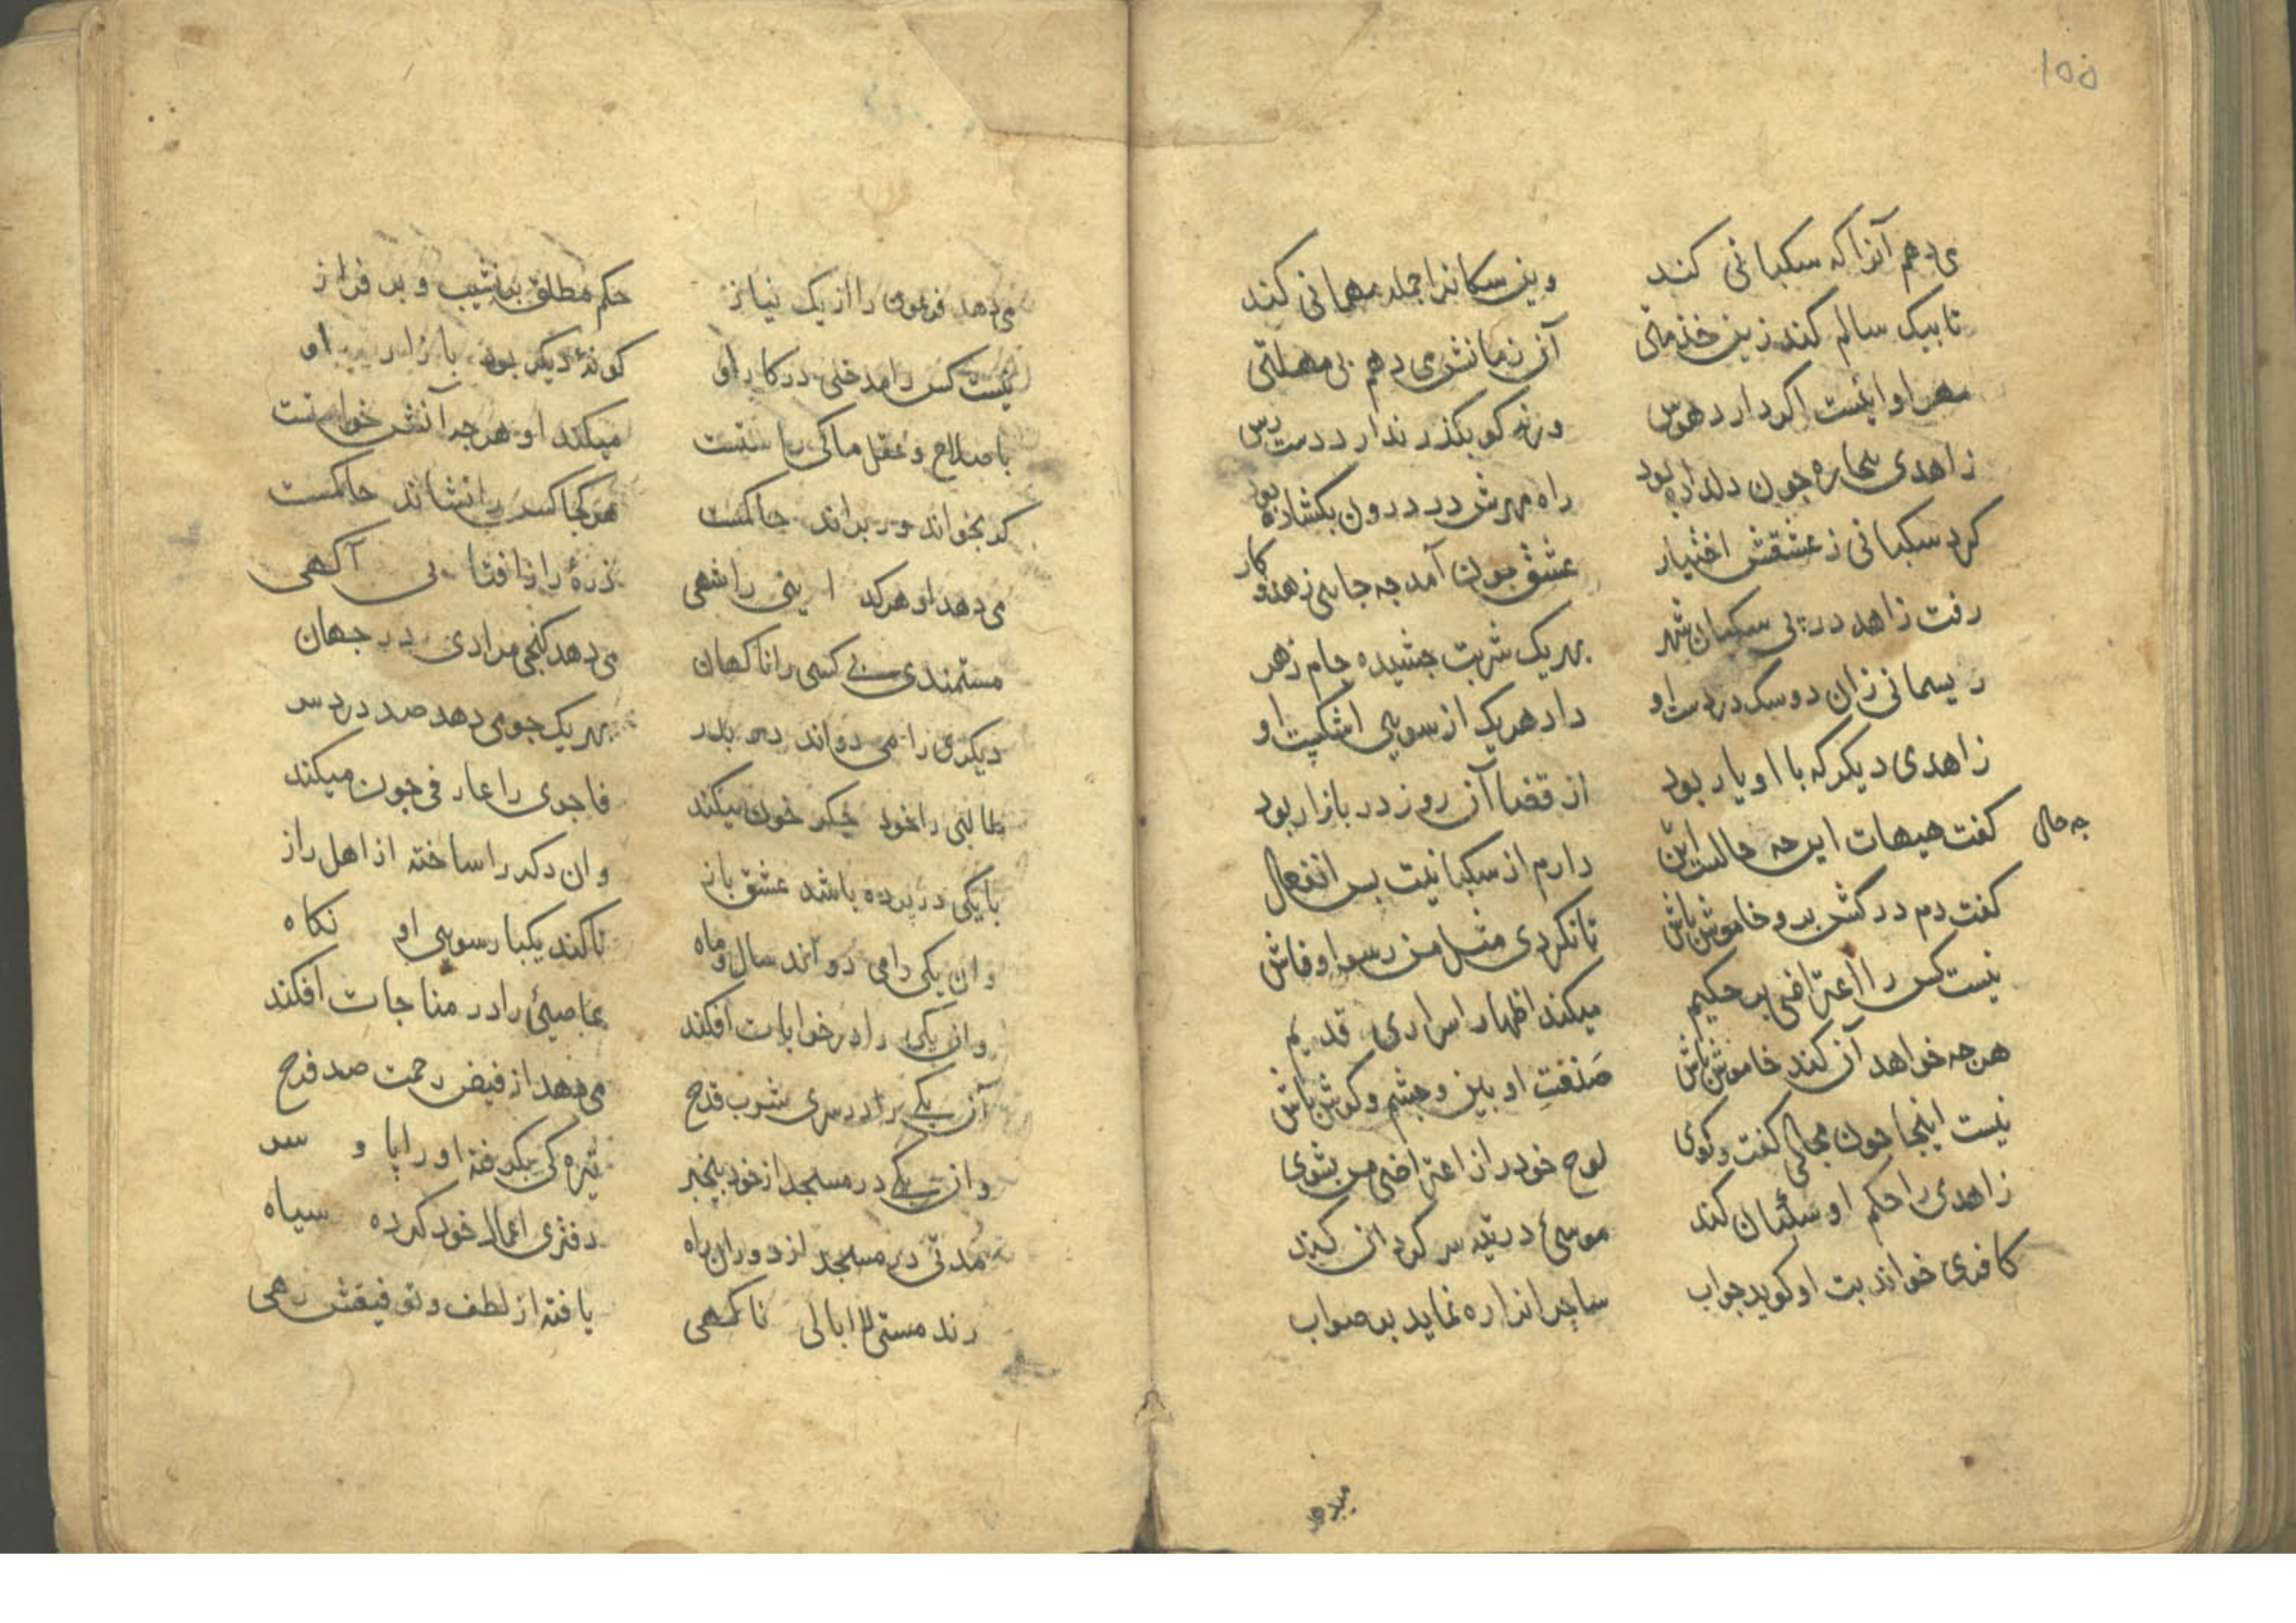 ۱۵۵
می دهم آنرا که سکبانی کند وین سکانرا جمله مهمانی کند
تا بیک سالم کند زین خذمتی آن زمانش می دهم بی مهلتی
مهر او اینست اکر دارد هوس ورنه کو بکذر ندارد دست رس
زاهدی بیجاره جون دلداده بود راه مهرش در درون بکشاده بود
کرد سکبانی ز عشقش اختیار عشق جون آمد جه جایی زهد و کار
رفت زاهد در پی سکبان شهر بهر یک شربت جشیده جام زهر
ریسمانی زان دو سک در دست او داد هریک از سویی اشکپت او
زاهدی دیکر که با او یار بود از قضا آن روز در بازار بود
کفت هیهات این جه حالست این دارم از سکبانیت بس انفعال
جه حال
کفت دم درکش برو خاموش باش تا نکردی مثل من رسوا و فاش
نیست کس را اعتراضی بر حکیم میکند اظهار اسراری قدیم
هرجه خواهد آن کند خاموش باش صَنعتِ او بین و جشم و کوش باش
نیست اینجا جون مجالی کفت و کوی لوح خود را از اعتراضی من بشوی
زاهدی را حکم او سکبان کند موسئ در تیه سرکردان کند
کافری خواند بت او کوید جواب ساحرانرا ره نماید بر صواب
میدهد
می دهد فرعون را از یک نیاز حکم مطلق بر نشیب و بر فراز
نیست کس را مدخلی در کار او کونۀ دیکر بود بازار او
با صلاح و عقل ما کی راستست میکند او هرجه آنش خواستست
کر بخواند ور براند حاکمست هرکجا کس را نشاند حاکمست
می دهد او هرکه را بینی راشهی ذرۀ را زافتابی آکهی
مستمندی بی کسی را ناکهان می دهد کنجی مرادی در جهان
دیکری را می دواند در بدر بهر یک جو می دهد صد دردسر
طالبی را خود جکر خون میکند فاجری را عارفی جون میکند
با یکی در پرده باشد عشق باز وان دکر را ساخته از اهل راز
وان یکی را می دواند سال و ماه تا کند یکبار سویی او نکاه
وان یکی را در خرابات افکند عاصیئ را در مناجات افکند
آن یکی را در سری شرب قدح می دهد از فیض رحمت صد فرح
وان یکی در مسجد از خود بیخبر تیره کی بکرفته او را پا و سر
مُدتی در مسجد از دوران راه دفتری اعمال خود کرده سیاه
رند مستی لاابالی ناکهی یافته از لطف و توفیقش رهی